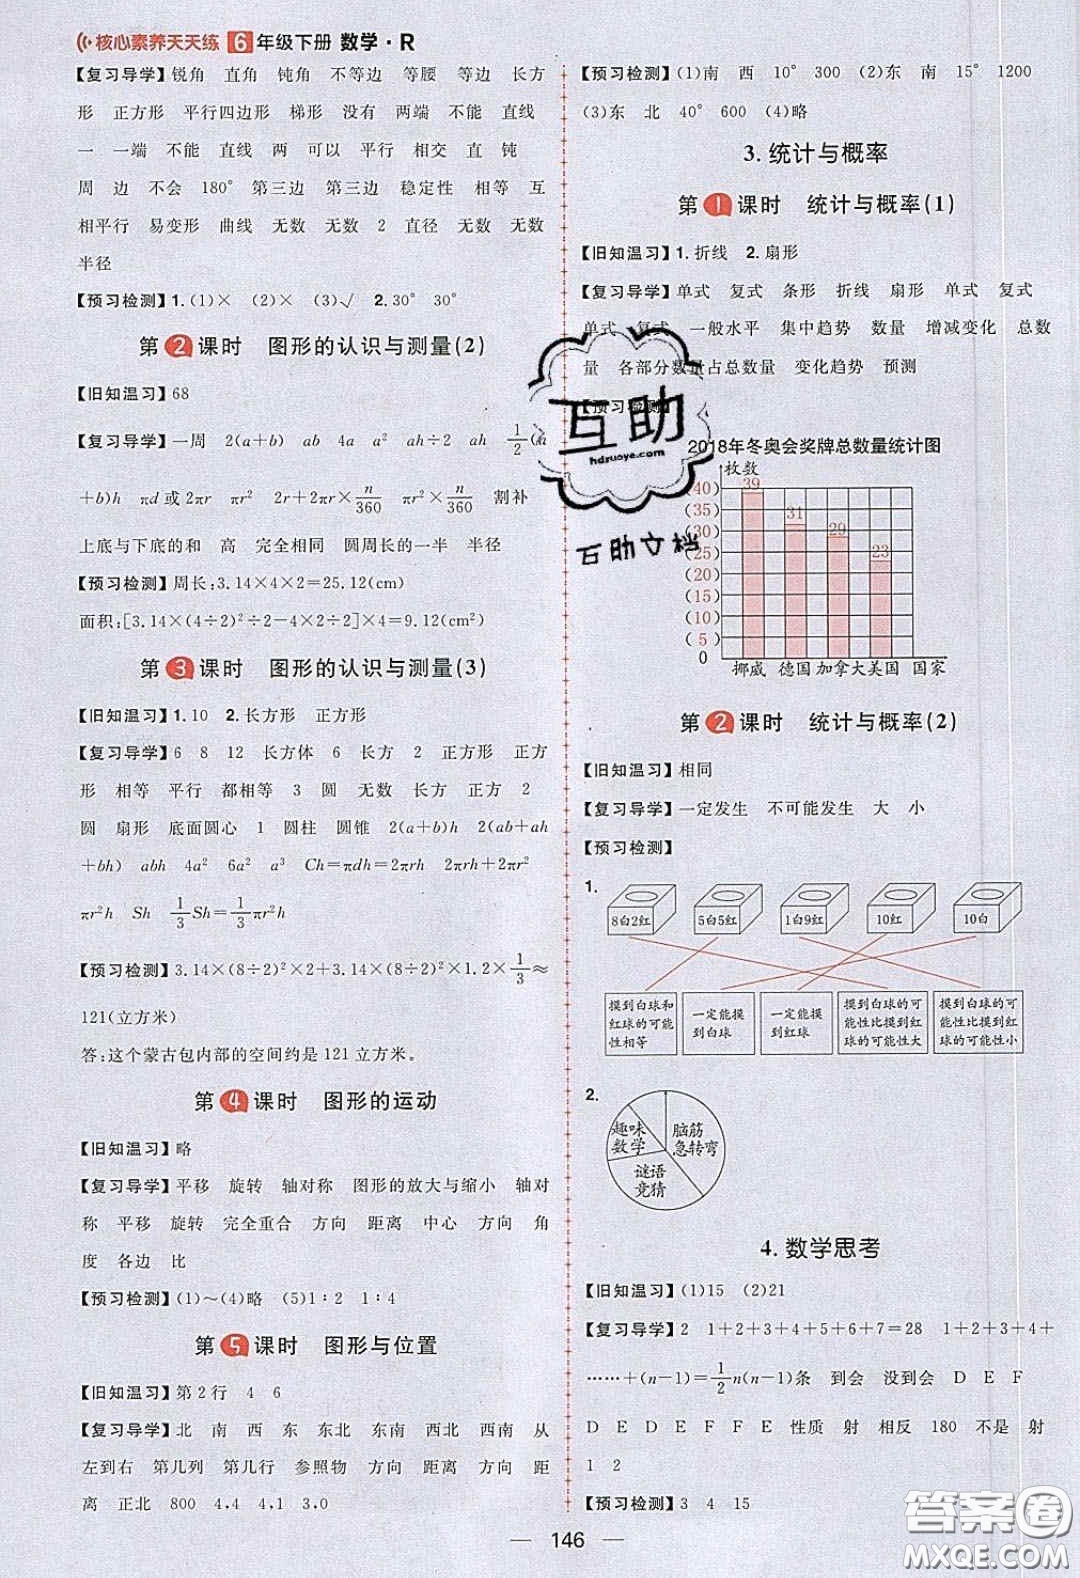 核心素养天天练 6 年级下册 数学·R
【复习导学】锐角 直角 钝角 不等边 等腰 等边 长方
形 正方形 平行四边形 梯形 没有 两端 不能 直线
一 一端 不能 直线 两 可以 平行 相交 直 钝
周 边 不会 180° 第三边 第三边 稳定性 相等 互
相平行 易变形 曲线 无数 无数 2 直径 无数 无数
半径
【预习检测】1.(1)× (2)× (3)√ 2.30° 30°
第2课时 图形的认识与测量(2)
【旧知温习】68
【复习导学】一周 2(a+b) ab 4a ah÷2 ah 1/2(a
+b)h πd或2πr πr² 2r+2πr×n/360 πr²×n/360 割补
上底与下底的和 高 完全相同 圆周长的一半 半径
【预习检测】周长:3.14×4×2=25.12(cm)
面积:[3.14×(4÷2)²÷2-4×2÷2]×4=9.12(cm²)
第3课时 图形的认识与测量(3)
【旧知温习】1.10 2.长方形 正方形
【复习导学】6 8 12 长方体 6 长方 2 正方形 正方
形 相等 平行 都相等 3 圆 无数 长方 正方 2
圆 扇形 底面圆心 1 圆柱 圆锥 2(a+b)h 2(ab+ah
+bh) abh 4a² 6a² a³ Ch=πdh=2πrh 2πrh+2πr²
πr²h Sh 1/3Sh=1/3πr²h
【预习检测】3.14×(8÷2)²×2+3.14×(8÷2)²×1.2×1/3≈
121(立方米)
答:这个蒙古包内部的空间约是121立方米。
第4课时 图形的运动
【旧知温习】略
【复习导学】平移 旋转 轴对称 图形的放大与缩小 轴对
称 平移 旋转 完全重合 方向 距离 中心 方向 角
度 各边 比
【预习检测】(1)～(4)略 (5)1∶2 1∶4
第5课时 图形与位置
【旧知温习】第2行 4 6
【复习导学】北 南 西 东 东北 东南 西北 西南 从
左到右 第几列 第几行 参照物 方向 距离 方向 距
离 正北 800 4.4 4.1 3.0
【预习检测】(1)南 西 10° 300 (2)东 南 15° 1200
(3)东 北 40° 600 (4)略
3.统计与概率
第1课时 统计与概率(1)
【旧知温习】1.折线 2.扇形
【复习导学】单式 复式 条形 折线 扇形 单式 复式
单式 复式 一般水平 集中趋势 数量 增减变化 总数
量 各部分数量占总数量 变化趋势 预测
【预习检测】
2018年冬奥会奖牌总数量统计图
枚数
(40) 39
(35) 31
(30) 29
(25) 23
(20)
(15)
(10)
(5)
0
挪威 德国 加拿大 美国 国家
第2课时 统计与概率(2)
【旧知温习】相同
【复习导学】一定发生 不可能发生 大 小
【预习检测】
1.
8白2红 5白5红 1白9红 10红 10白
摸到白球和红球的可能性相等 一定能摸到白球 一定能摸到红球 摸到白球的可能性比摸到红球的可能性大 摸到白球的可能性比摸到红球的可能性小
2.
趣味数学 脑筋急转弯
谜语竞猜
4.数学思考
【旧知温习】(1)15 (2)21
【复习导学】2 1+2+3+4+5+6+7=28 1+2+3+4+
……+(n-1)=1/2n(n-1)条 到会 没到会 D E F
D E D E F F E 性质 射 相反 180 不是 射
1 2
【预习检测】3 4 15
146
互助
hdzuoye.com
互助文档
答案圈
MXQE.COM